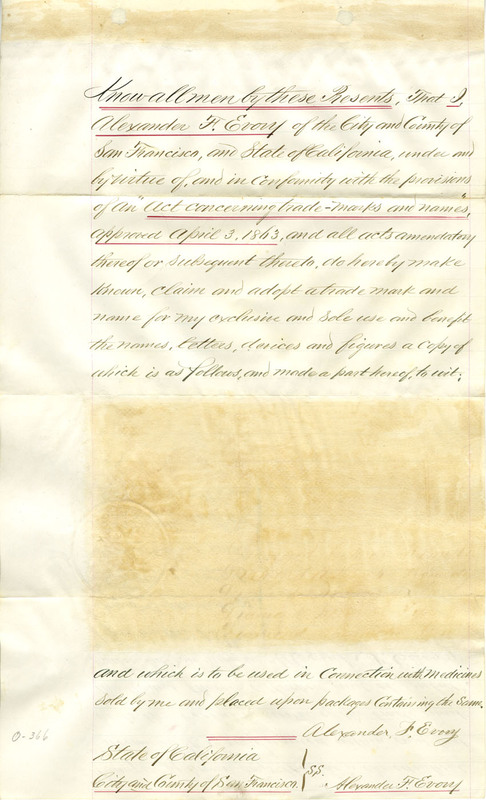 Know all men by these Presents, That I,
Alexander F. Evory of the City and County of
San Francisco, and State of California, under and
by virtue of, and in conformity with the provisions
of an "Act concerning trade-marks and names",
approved April 3, 1863, and all acts amendatory
thereof or subsequent thereto, do hereby make
known, claim and adopt a trade mark and
name for my exclusive and sole use and benefit
the names, letters, devices and figures a copy of
which is as follows, and made a part hereof, to wit:
and which is to be used in connection with medicines
sold by me and placed upon packages containing the same.
Alexander. F. Evory
State of California
City and County of San Francisco. } S.S. Alexander F. Evory
O-366